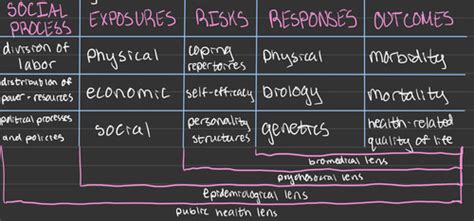 SOCIAL PROCESS EXPOSURES RISKS RESPONSES OUTCOMES
division of labor Physical coping repertoires Physical morbidity
distribution of power-resources economic self-efficacy biology mortality
political processes and policies social personality structures genetics health-related quality of life
biomedical lens
psychosocial lens
epidemiological lens
public health lens